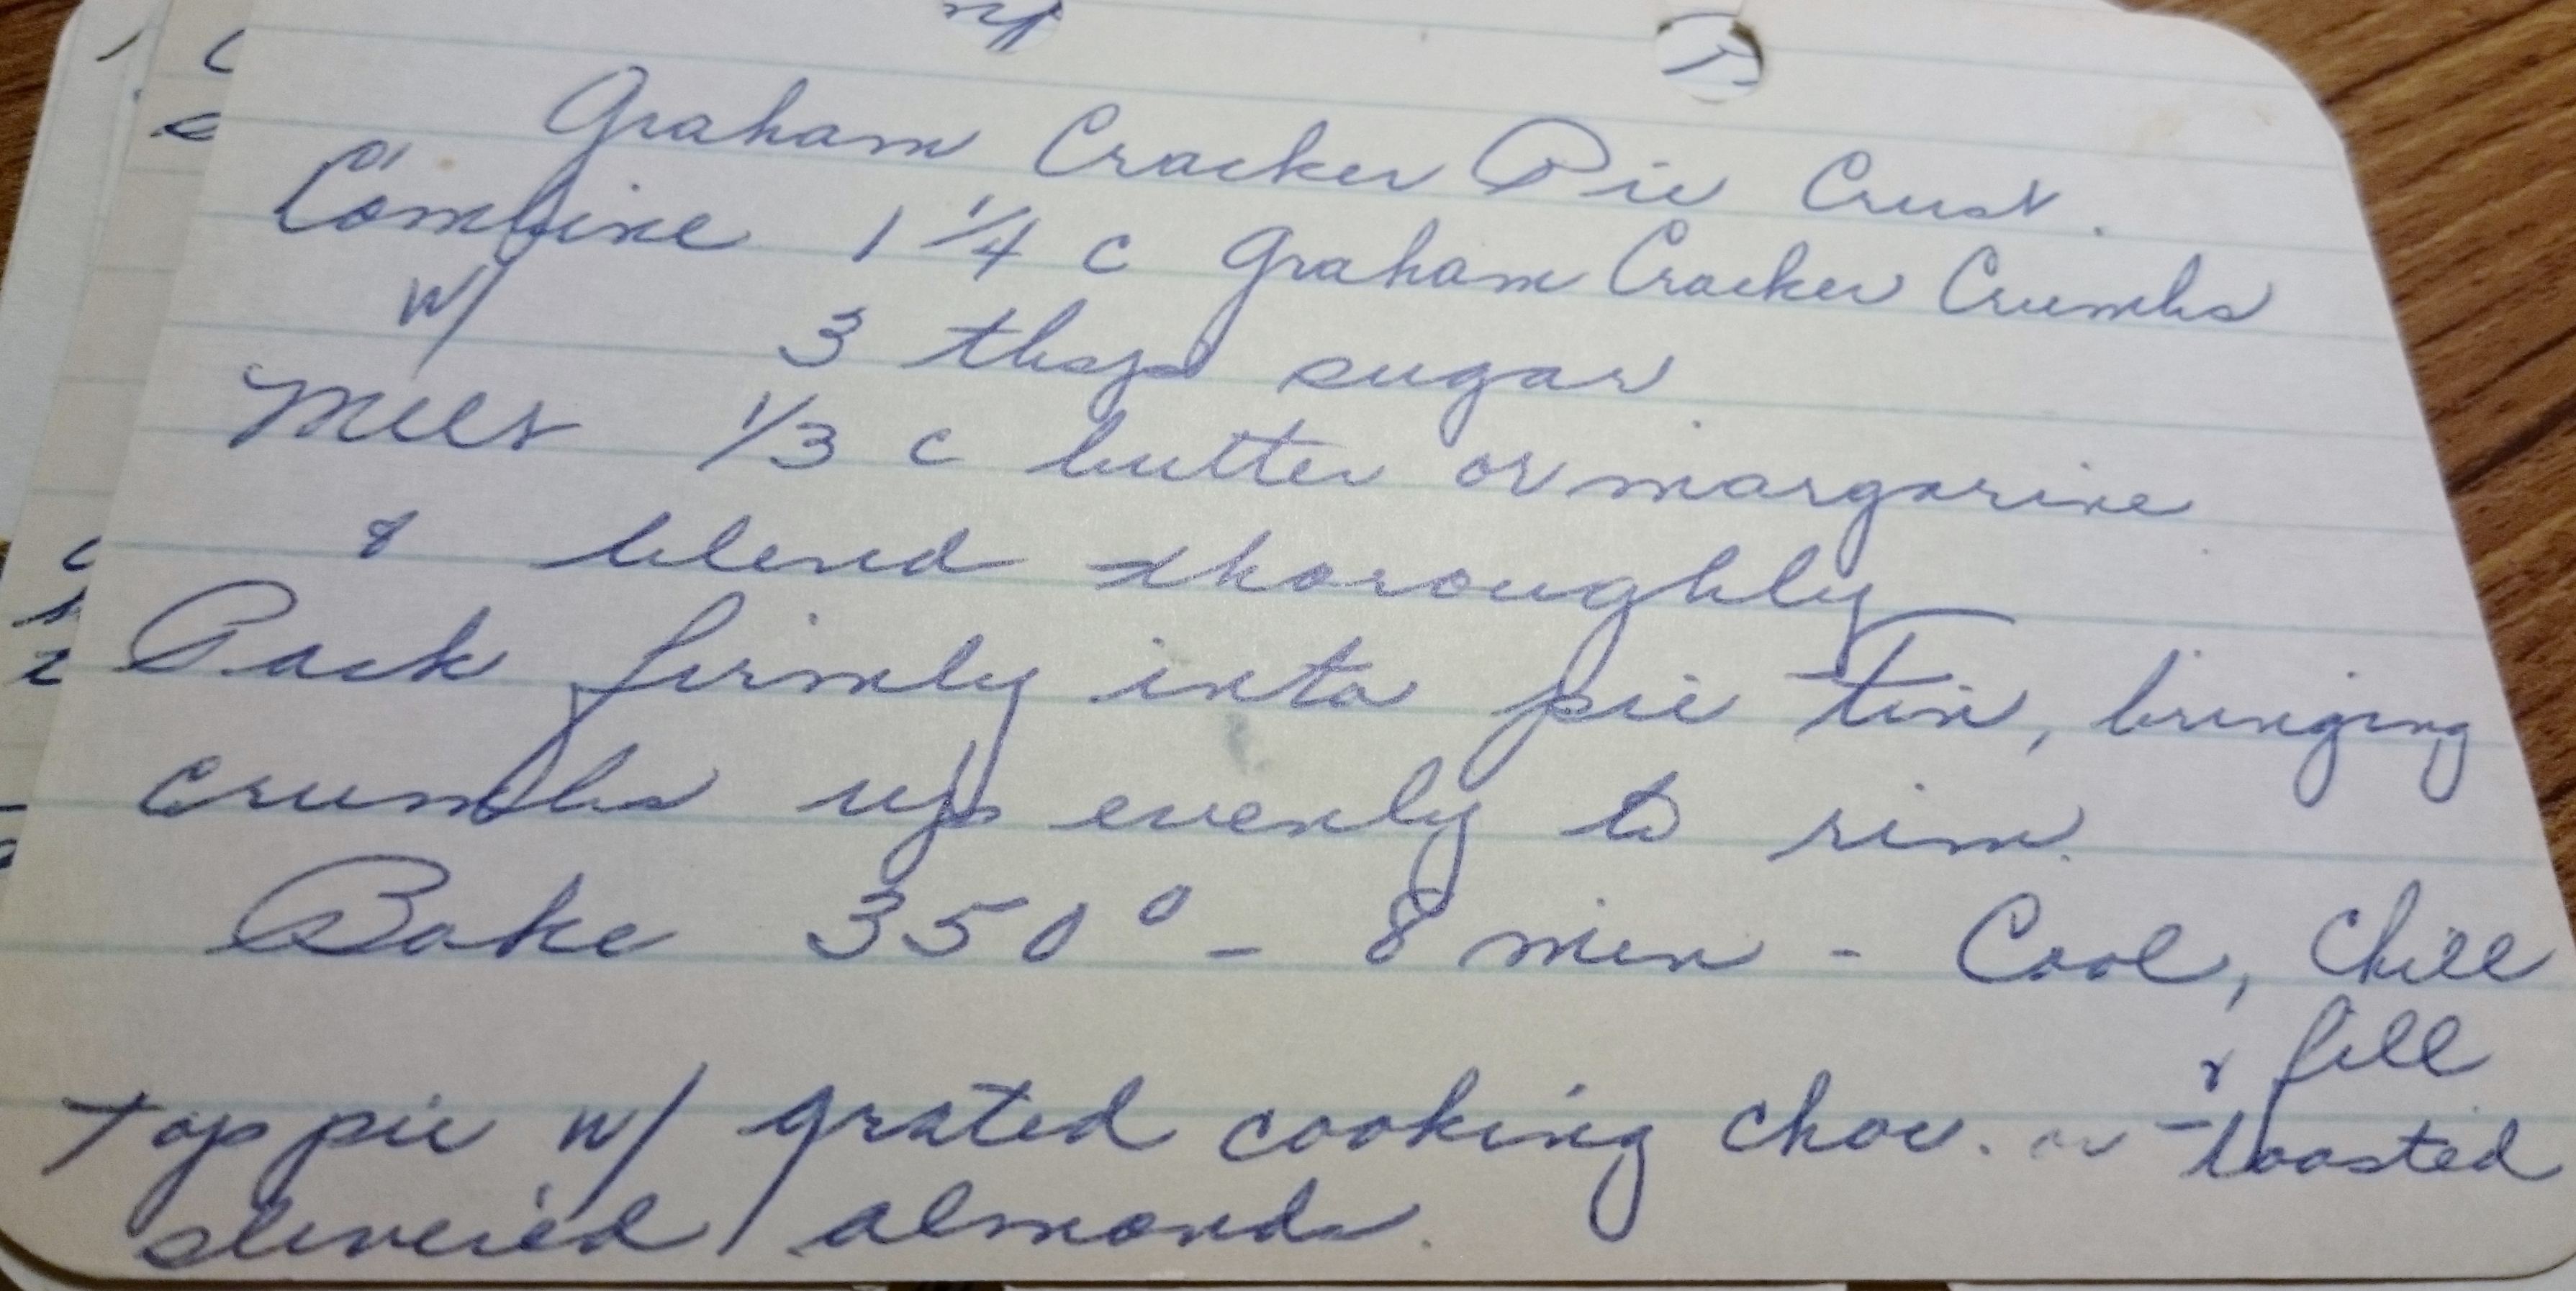 Graham Cracker Pie Crust.
Combine 1 1/4 c Graham Cracker Crumbs
w/ 3 tbsps sugar
Melt 1/3 c butter or margarine
& blend thoroughly
Pack firmly into pie tin, bringing
crumbs up evenly to rim.
Bake 350° - 8 min - Cool, Chill
& fill
Top pie w/ grated cooking choc. or toasted
slivered almonds.